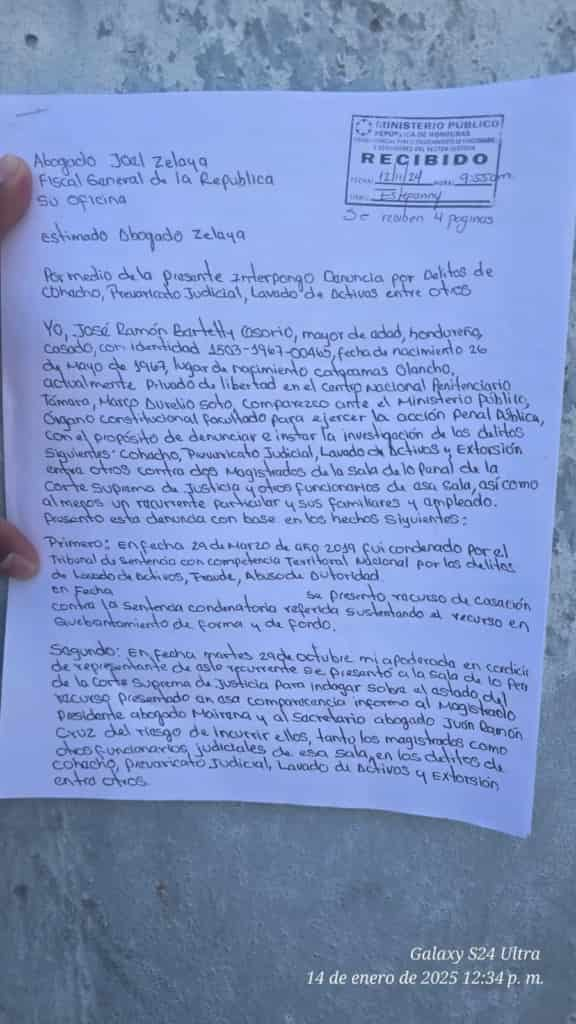 MINISTERIO PÚBLICO
REPÚBLICA DE HONDURAS
RECIBIDO
FECHA: 12/11/24 HORA: 9:55am
Estepanny
Se reciben 4 paginas
Abogado Joel Zelaya
Fiscal General de la Republica
Su oficina
Estimado Abogado Zelaya
Por medio de la presente Interpongo Denuncia por Delitos de
Cohacho, Prevaricato Judicial, Lavado de Activos entre otros
Yo, José Ramón Bartetty Osorio, mayor de adad, hondureño,
casado, con identidad 1503-1967-00465, fecha de nacimiento 26
de Mayo de 1967, lugar de nacimiento catacamas Olancho,
actualmente Privado de libertad en el centro Nacional Penitenciario
Támara, Marco Aurelio soto, comparezco ante el Ministerio Público,
Órgano constitucional facultado para ejercer la acción Penal Pública,
con el propósito de denunciar e instar la investigación de los delitos
siguientes: Cohacho, Prevaricato Judicial, Lavado de Activos y Extorsión
entre otros contra dos Magistrados de la sala de lo Penal de la
Corte Suprema de Justicia y otros funcionarios de esa Sala, así como
al menos un recurrente particular y sus familiares y empleado.
Presento esta denuncia con base en los hechos siguientes:
Primero: En fecha 29 de Marzo de año 2019 fui condenado por el
Tribunal de Sentencia con competencia Territorial Nacional por los delitos
de Lavado de Activos, Fraude, Abuso de Autoridad.
en Fecha se presento recurso de casación
contra la sentencia condenatoria referida sustentando el recurso en
Quebrantamiento de forma y de fondo.
Segundo: En fecha martes 29 de octubre mi apoderada en condición
de representante de este recurrente se presento a la sala de lo Pen
de la Corte Suprema de Justicia para indagar sobre el estado del
recurso presentado en esa comparecencia informo al Magistrado
Presidente abogado Mairena y al Secretario abogado Juan Ramón
Cruz del riesgo de incurrir ellos, tanto los magistrados como
otros funcionarios judiciales de esa sala, en los delitos de
cohacho, Prevaricato Judicial, Lavado de Activos y Extorsión
entre otros.
Galaxy S24 Ultra
14 de enero de 2025 12:34 p. m.